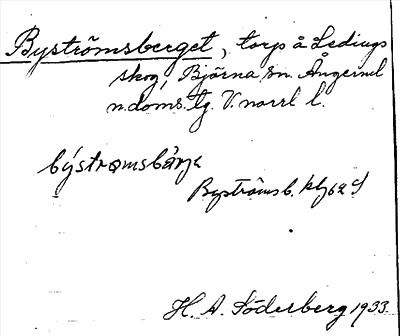 Byströmsberget, torp å Ledings
skog, Björna sn. Ångerml
n. doms. tg. V. norrl l.
býstromsbärje
Byströmsb. klg 62
H. A. Söderberg 1933